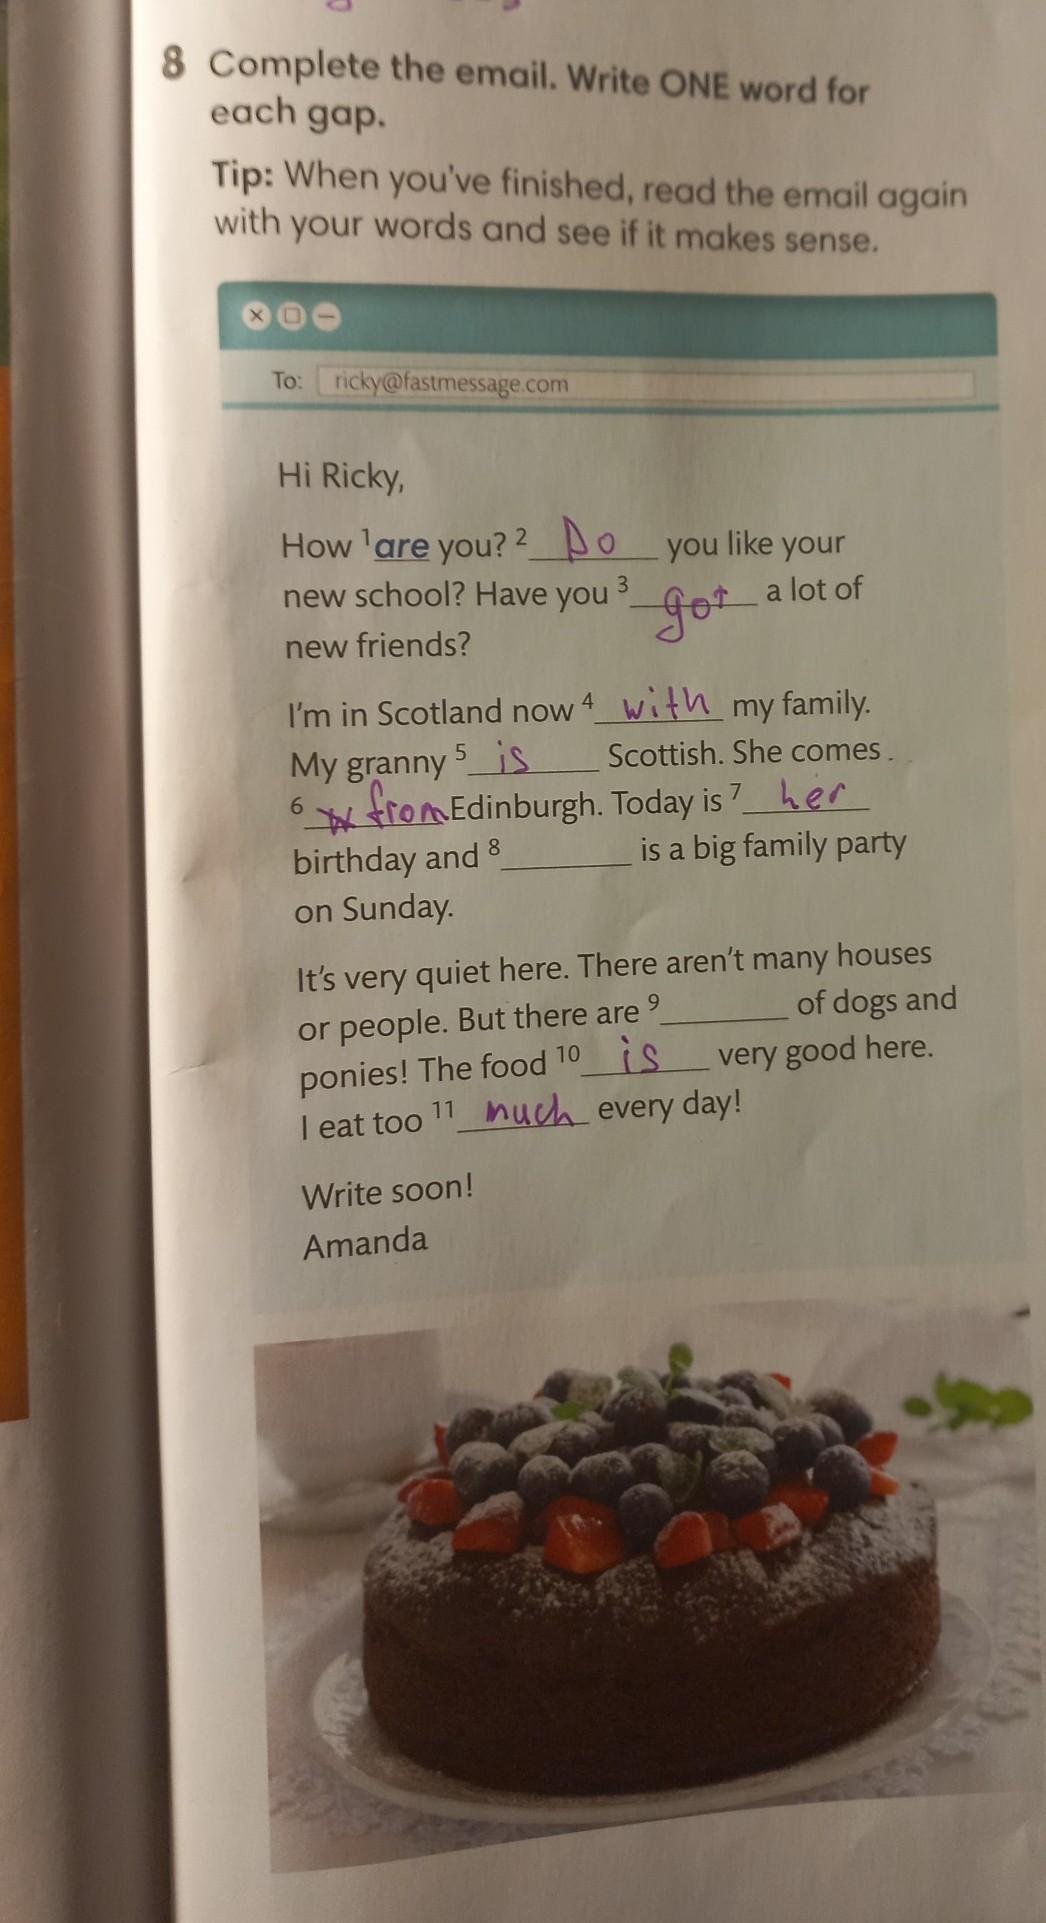 8 Complete the email. Write ONE word for
each gap.
Tip: When you've finished, read the email again
with your words and see if it makes sense.
To: ricky@fastmessage.com
Hi Ricky,
How 1 are you? 2 Do you like your
new school? Have you 3 got a lot of
new friends?
I'm in Scotland now 4 with my family.
My granny 5 is Scottish. She comes
6 from Edinburgh. Today is 7 her
birthday and 8 ________ is a big family party
on Sunday.
It's very quiet here. There aren't many houses
or people. But there are 9 ________ of dogs and
ponies! The food 10 is very good here.
I eat too 11 much every day!
Write soon!
Amanda